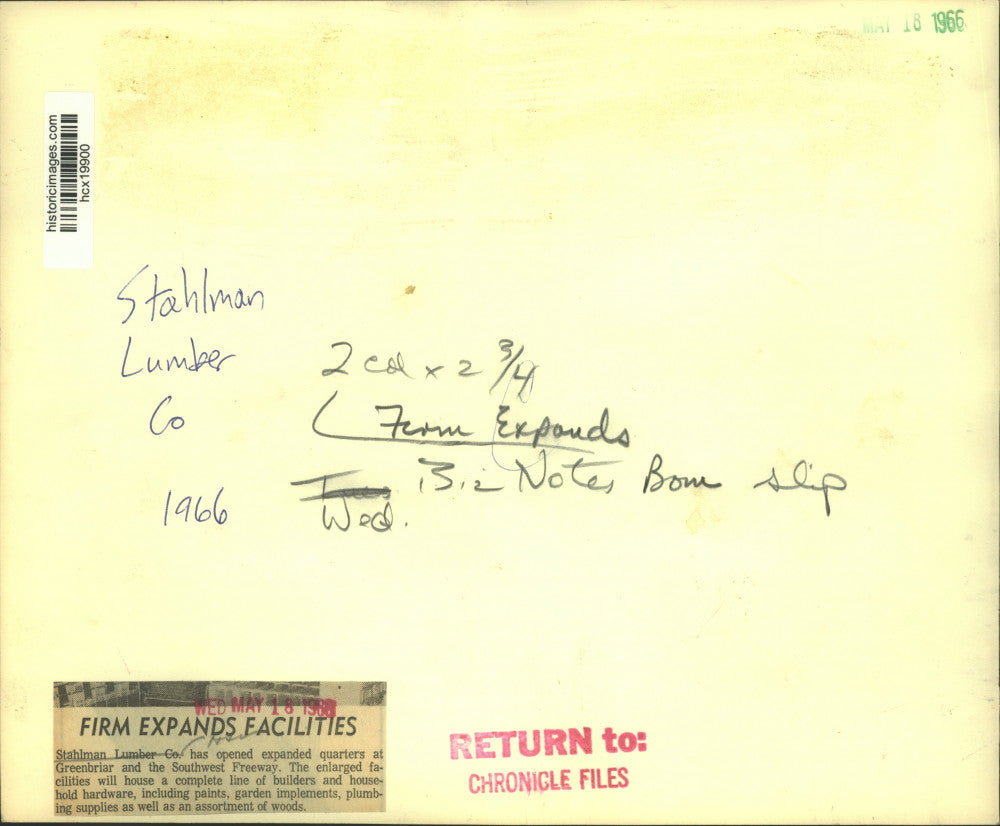 MAY 18 1966
historicimages.com
hcx19900
Stahlman
Lumber
Co
1966
2 col x 2 3/4
Firm Expands
Biz Notes Bom slip
Wed.
WED MAY 18 1966
FIRM EXPANDS FACILITIES
Stahlman Lumber Co. has opened expanded quarters at
Greenbriar and the Southwest Freeway. The enlarged fa-
cilities will house a complete line of builders and house-
hold hardware, including paints, garden implements, plumb-
ing supplies as well as an assortment of woods.
RETURN to:
CHRONICLE FILES